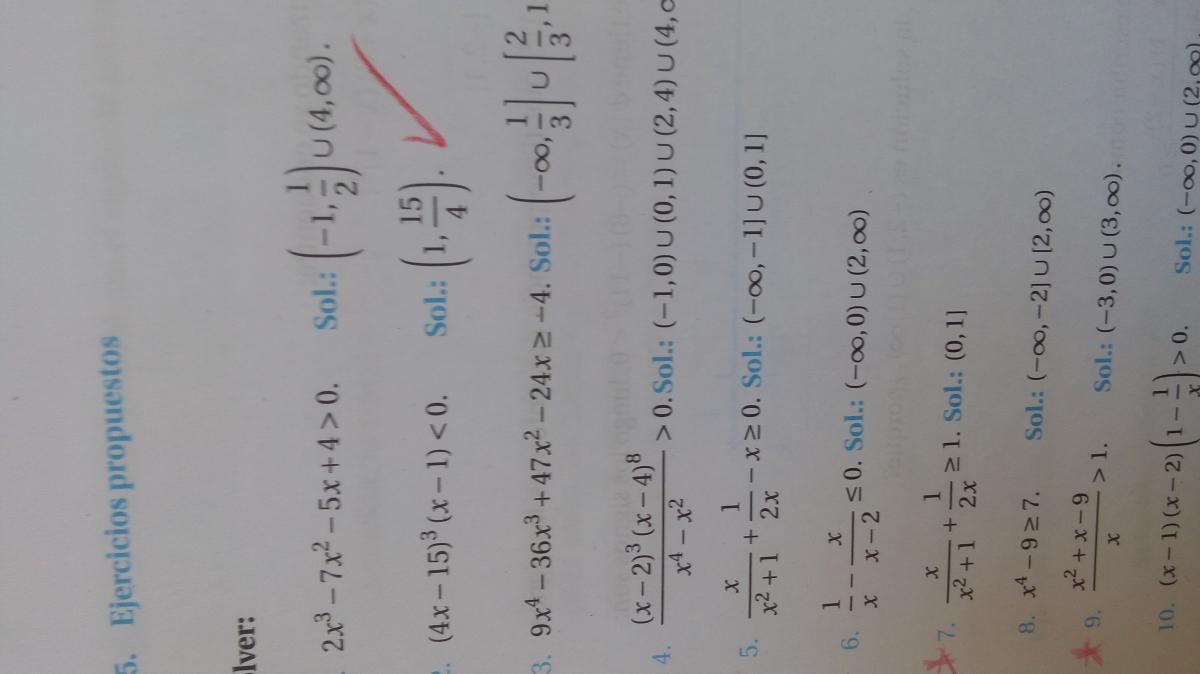 5. Ejercicios propuestos
olver:
2x³ − 7x² − 5x + 4 > 0. Sol.: (−1, 1/2) ∪ (4, ∞).
2. (4x − 15)³ (x − 1) < 0. Sol.: (1, 15/4).
3. 9x⁴ − 36x³ + 47x² − 24x ≥ −4. Sol.: (−∞, 1/3] ∪ [2/3, 1
4. (x − 2)³ (x − 4)⁸ / x⁴ − x² > 0. Sol.: (−1, 0) ∪ (0, 1) ∪ (2, 4) ∪ (4, ∞
5. x / x² + 1 + 1 / 2x − x ≥ 0. Sol.: (−∞, −1] ∪ (0, 1]
6. 1/x − x / x − 2 ≤ 0. Sol.: (−∞, 0) ∪ (2, ∞)
7. x / x² + 1 + 1 / 2x ≥ 1. Sol.: (0, 1]
8. x⁴ − 9 ≥ 7. Sol.: (−∞, −2] ∪ [2, ∞)
9. x² + x − 9 / x > 1. Sol.: (−3, 0) ∪ (3, ∞).
10. (x − 1) (x − 2) (1 − 1/x) > 0. Sol.: (−∞, 0) ∪ (2, ∞).